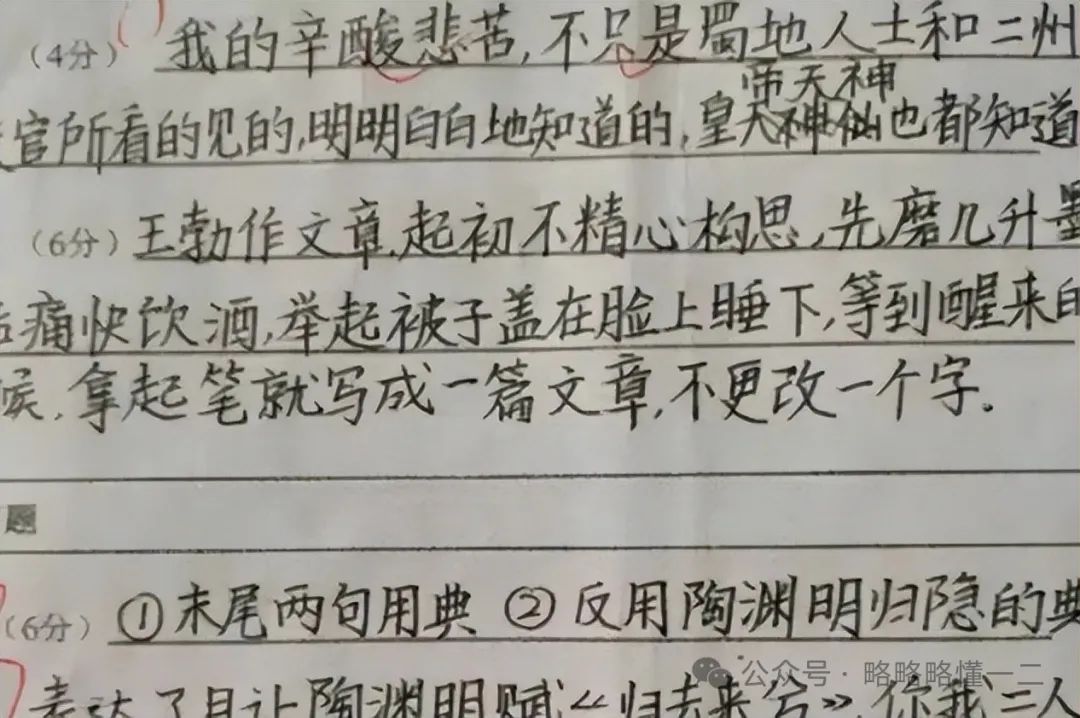 （4分） 我的辛酸悲苦,不只是蜀地人士和二州
帝天神
官所看的见的,明明白白地知道的,皇天神仙也都知道
（6分）王勃作文章,起初不精心构思,先磨几升墨
痛快饮酒,举起被子盖在脸上睡下,等到醒来的
候,拿起笔就写成一篇文章,不更改一个字。
题
（6分） ①末尾两句用典 ②反用陶渊明归隐的典
表达了且让陶渊明赋《归去来兮》,你我三人
公众号·略略略懂一二